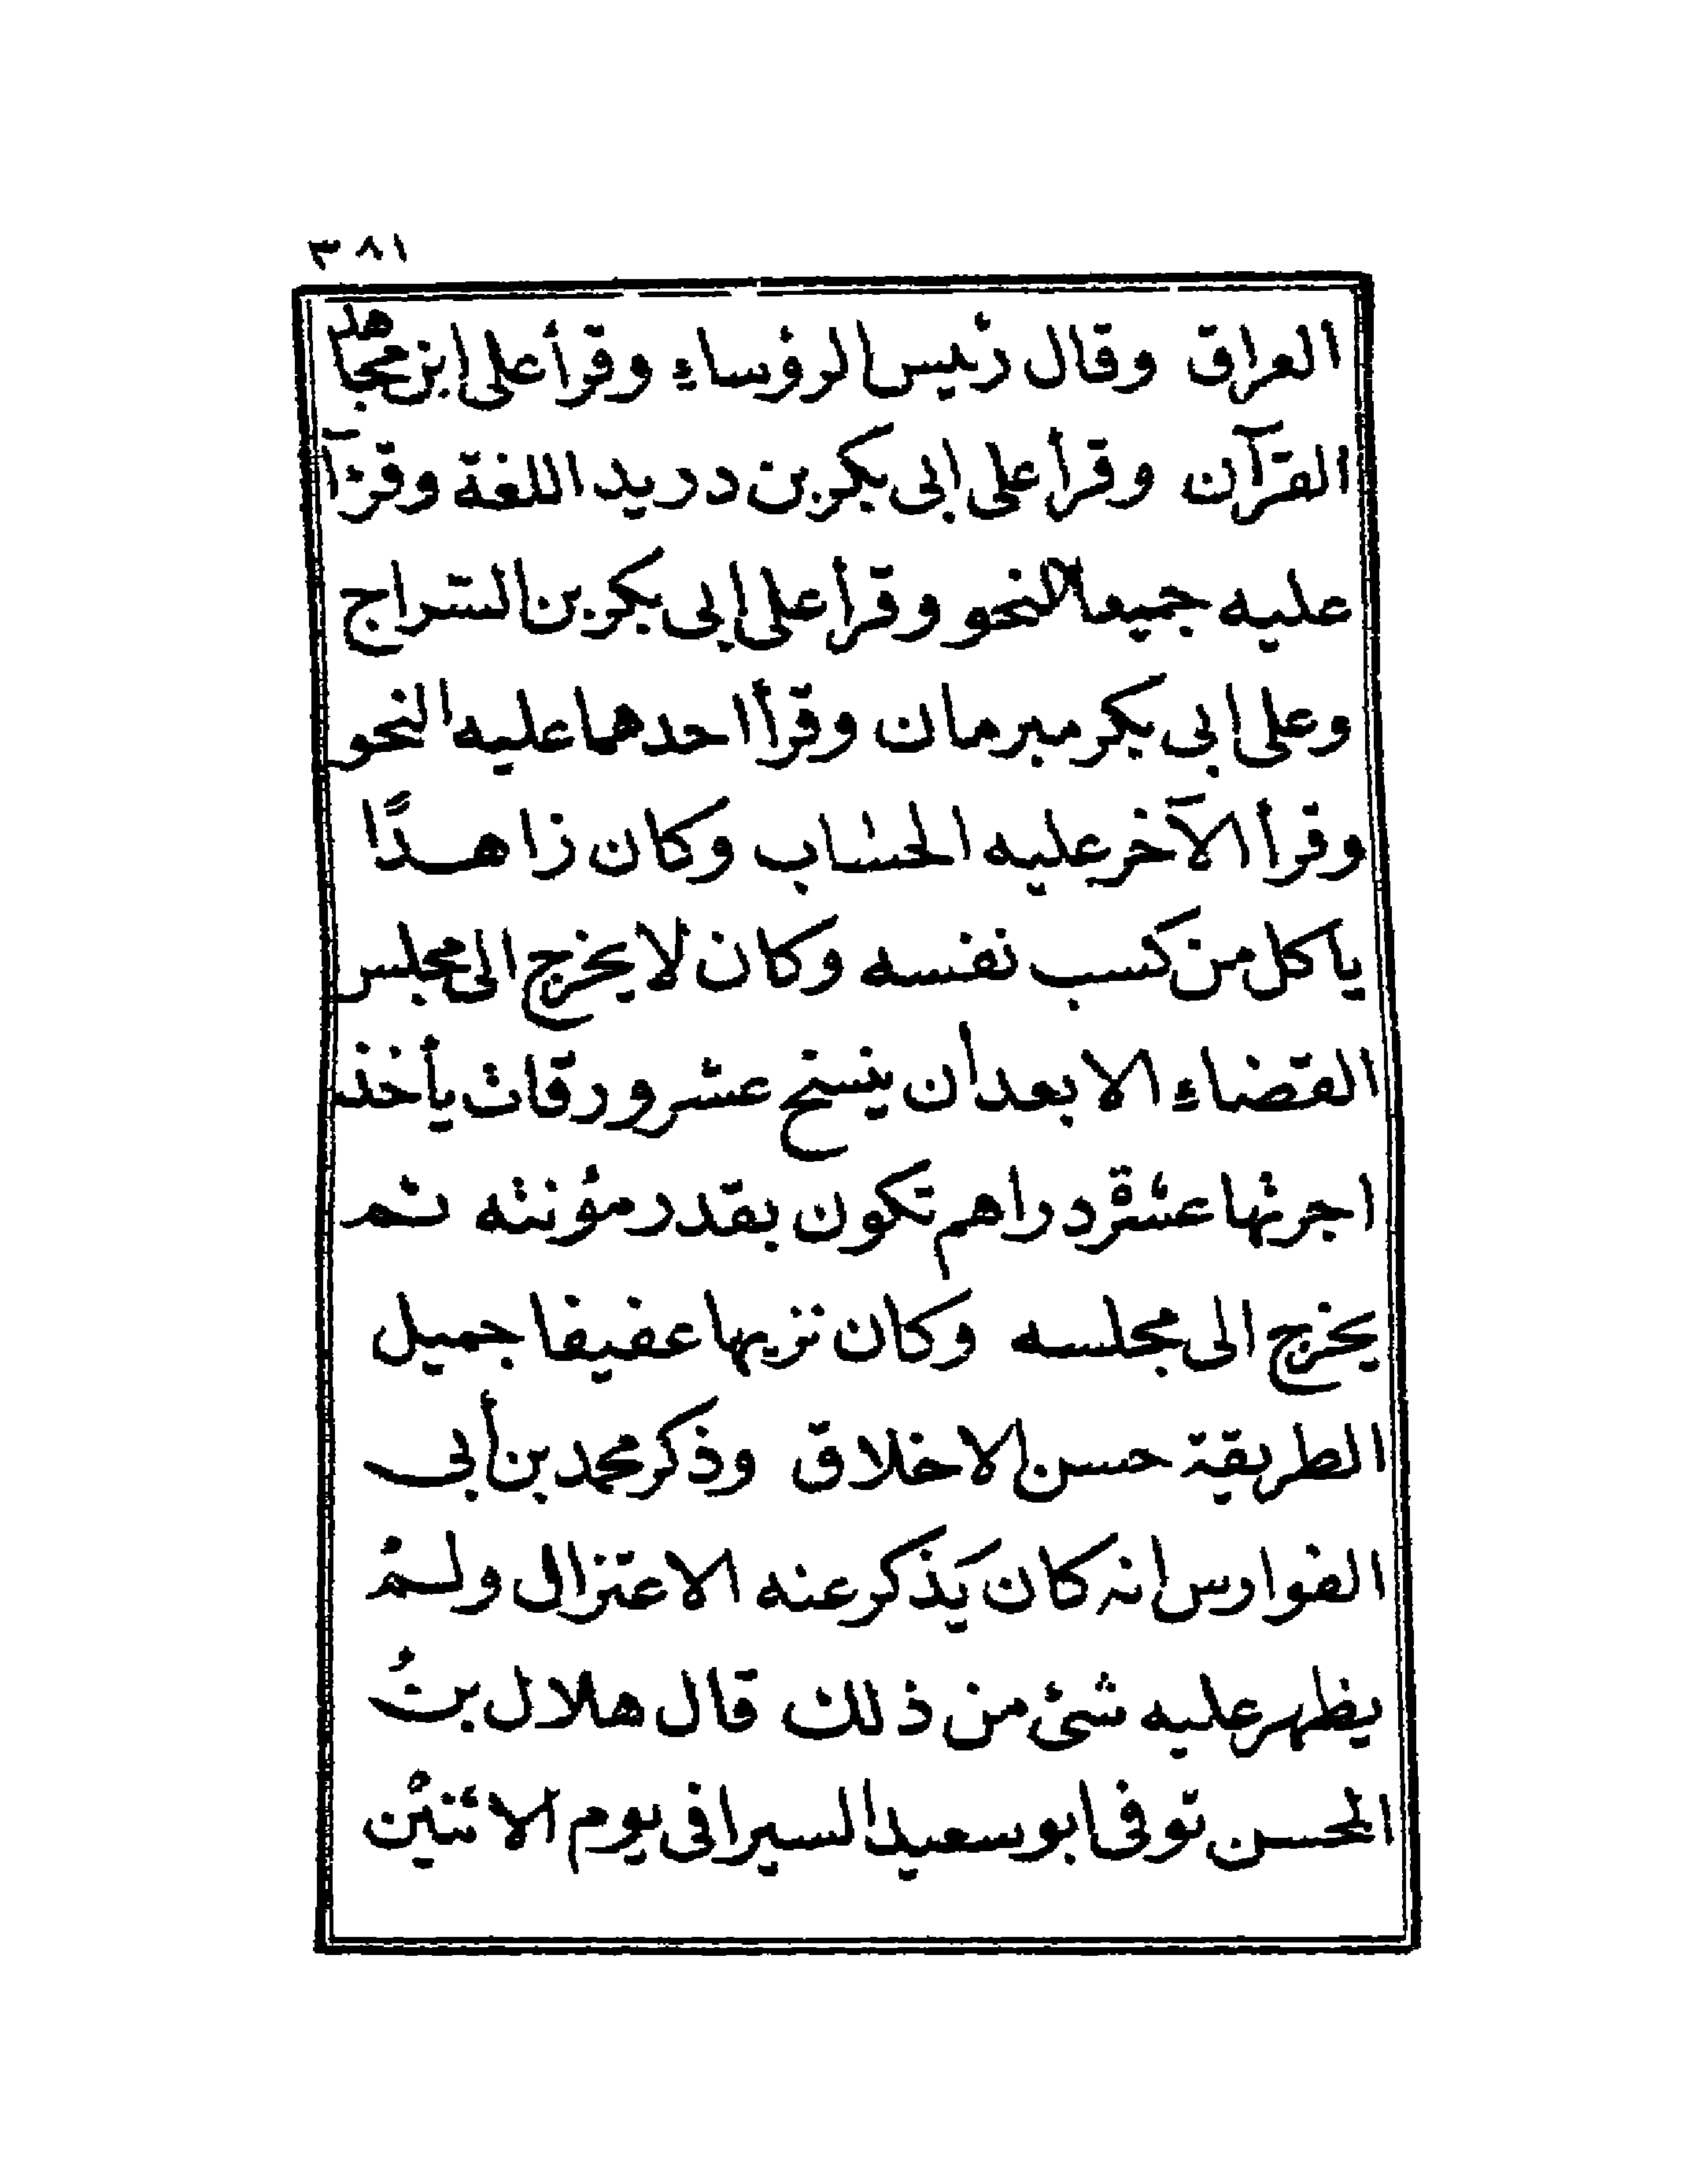 ٣٨١
العراق وقال رئيس الرؤساء وقرأ على ابن مجاهد
القرآن وقرأ على ابى بكر بن دريد اللغة وقرآ
عليه جميعا النحو وقرأ على ابى بكر بن السراج
وعلى ابى بكر مبرمان وقرأ احدهما عليه النحو
وقرأ الآخر عليه الحساب وكان زاهدًا
ياكل من كسب نفسه وكان لا يخرج الى مجلس
القضاء الا بعد أن ينسخ عشر ورقات يأخذ
اجرتها عشرة دراهم تكون بقدر مؤنته ثم
يخرج الى مجلسه وكان نزيها عفيفا جميل
الطريقة حسن الاخلاق وذكر محمد بن أبى
الفوارس انه كان يَذكر عنه الاعتزال ولمْ
يظهر عليه شئ من ذلك قال هلال بنُ
المحسن توفى ابو سعيد السيرافى يوم الاثنيْن